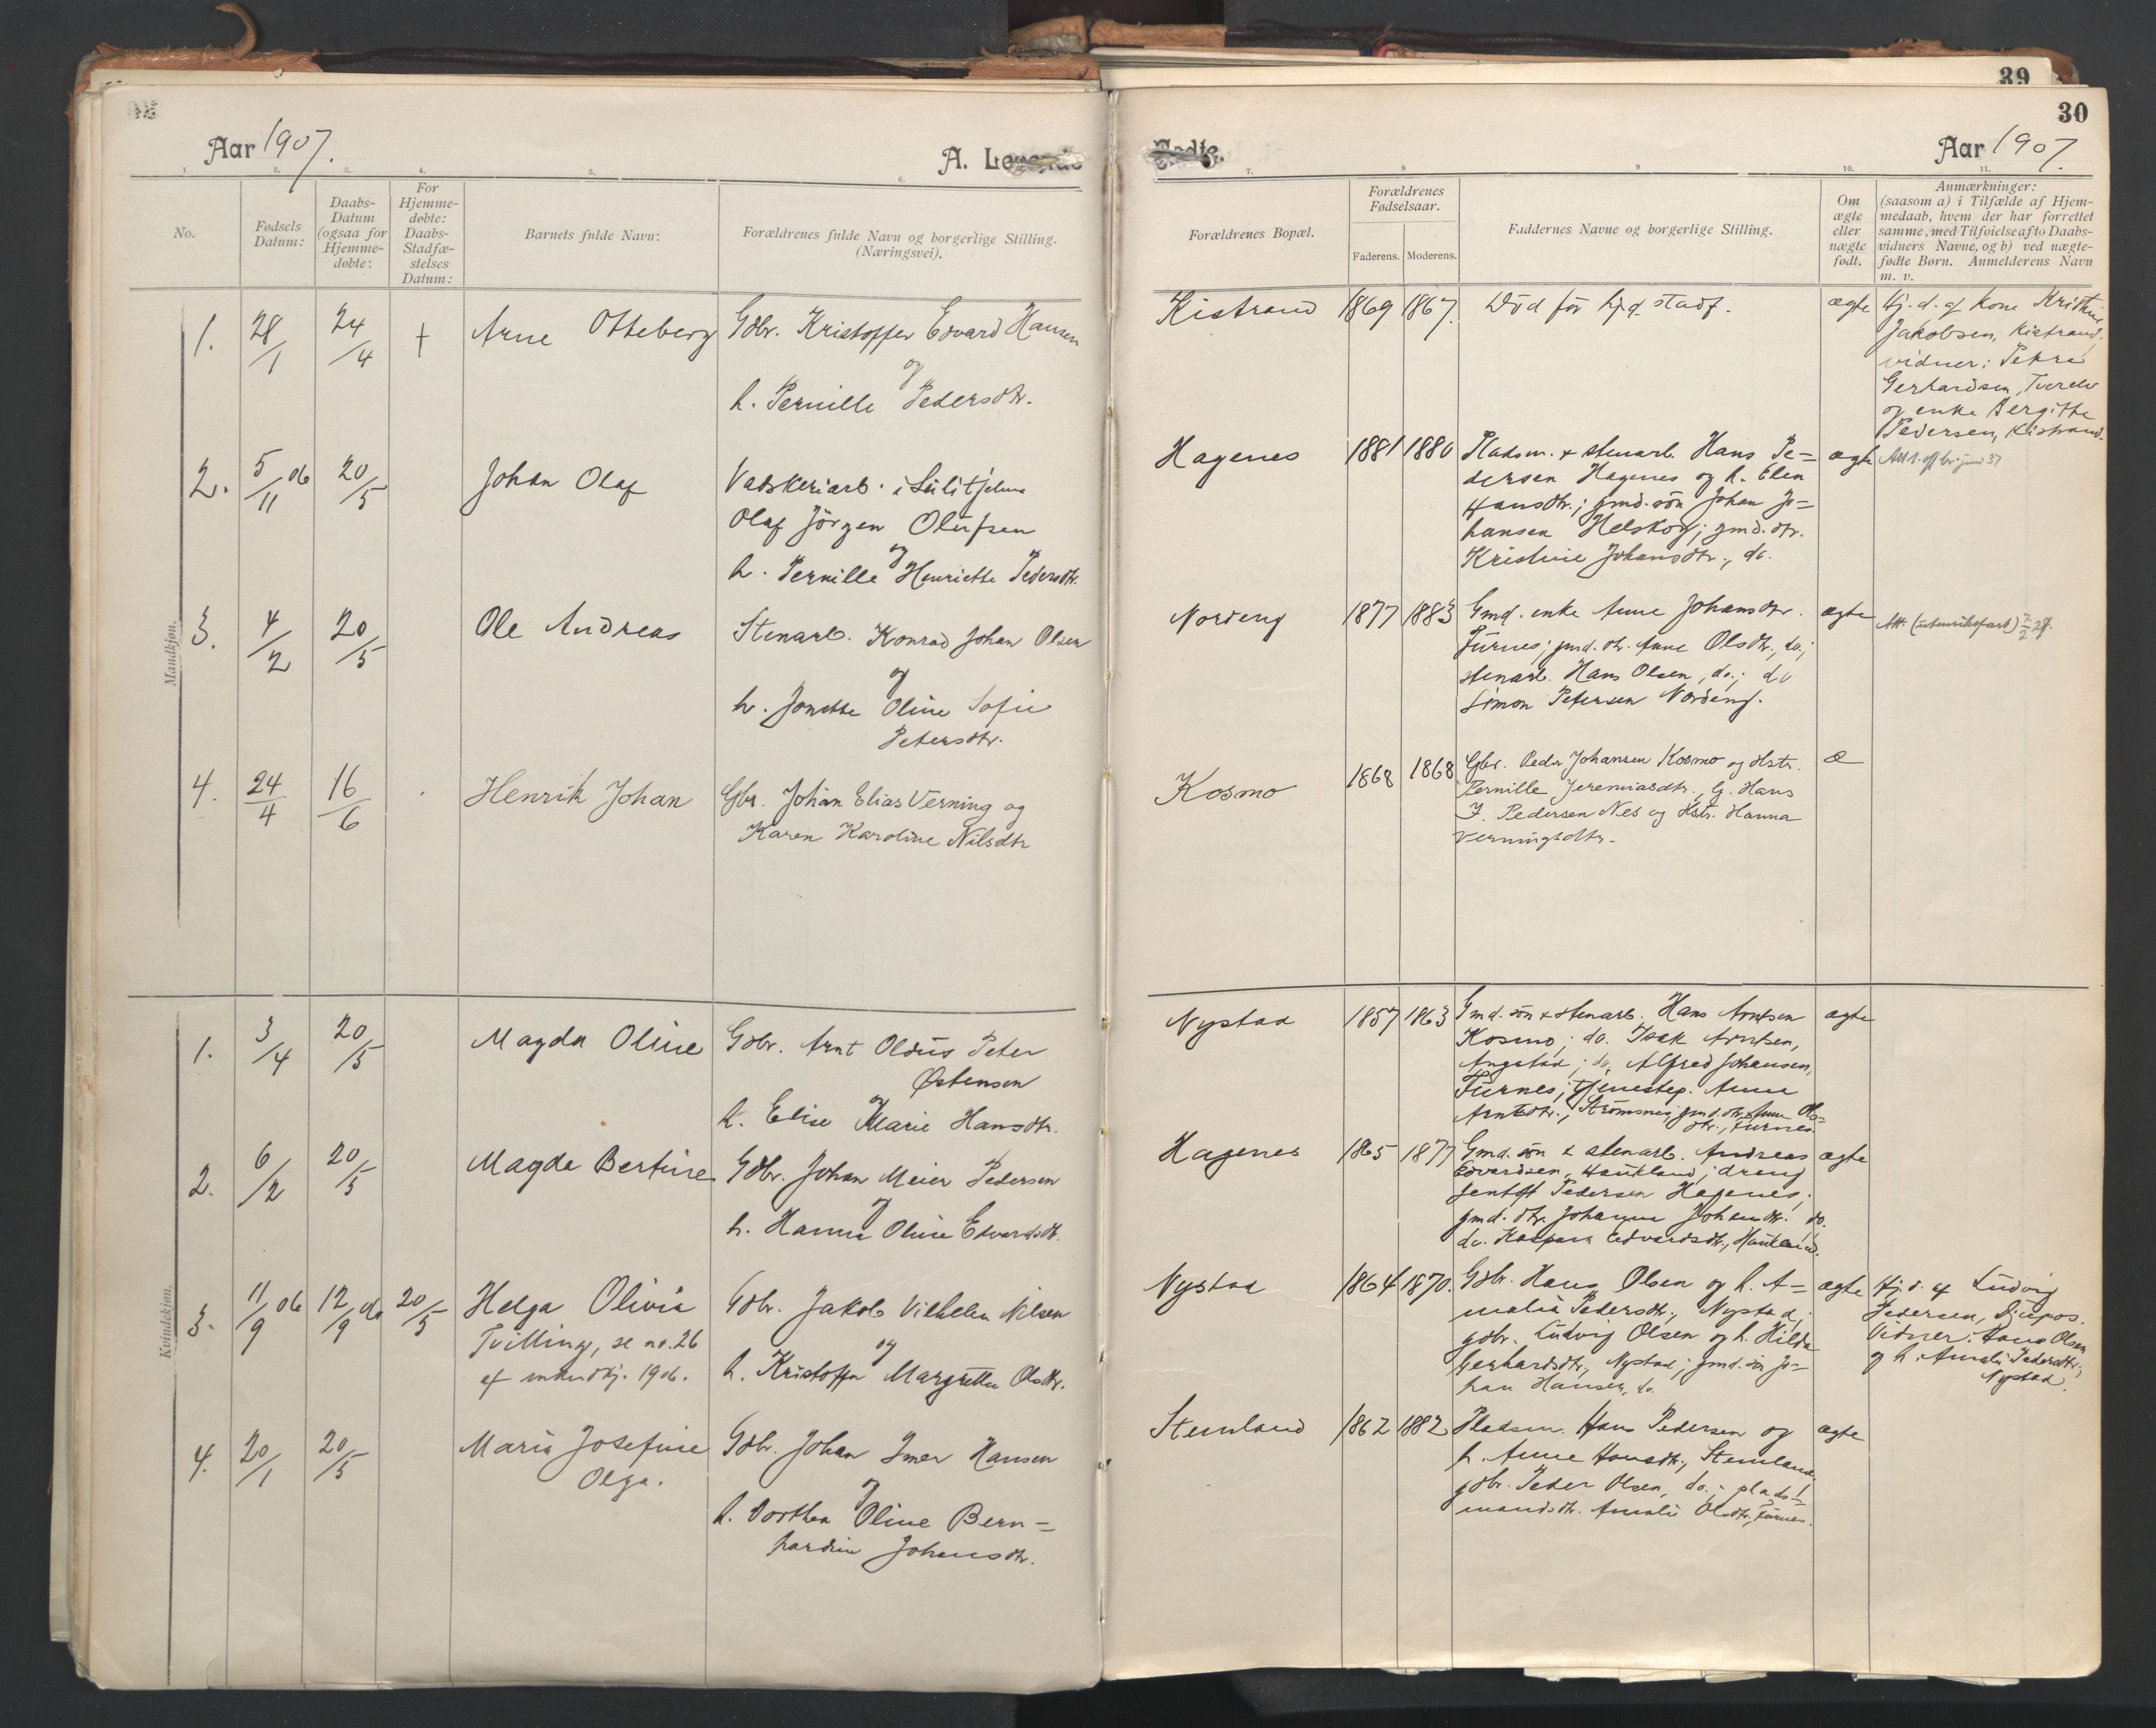 39
30
Aar 1907.
A. Levende
Fødte.
Aar 1907.
1. 2. 3. 4. 5. 6. 7. 8 9 10. 11.
No.
Fødsels
Datum:
Daabs-
Datum
(ogsaa for
Hjemme-
døbte:
For
Hjemme-
døbte:
Daabs-
Stadfæ-
stelses
Datum:
Barnets fulde Navn:
Forældrenes fulde Navn og borgerlige Stilling.
(Næringsvei).
Forældrenes Bopæl.
Forældrenes
Fødselsaar.
Faderens. Moderens.
Faddernes Navne og borgerlige Stilling.
Om
ægte
eller
uægte
født.
Anmærkninger:
(saasom a) i Tilfælde af Hjem-
medaab, hvem der har forrettet
samme, med Tilføielse af to Daabs-
vidners Navne, og b) ved uægte-
fødte Børn. Anmelderens Navn
m. v.
Mandkjøn.
1. 28/1 24/4 † Arne Otteberg
Gdbr. Kristoffer Edvard Hansen
og
h. Pernille Pedersdtr.
Kistrand 1869 1867. Död før hjd. stadf. ægte
Hj. d. af kone Kristine
Jakobsen, Kistrand,
vidner: Petra
Gerhardsen, Tverelv
og enke Bergitte
Pedersen, Kistrand.
2. 5/11 06 20/5 Johan Olaf
Vaskeriarb. i Sulitjelma
Olaf Jörgen Olufsen
og
h. Pernille Henriette Pedersdtr.
Hagenes 1881 1880
Pladsm. & stenarb. Hans Pe-
dersen Hagenes og h. Elen
Hansdtr.; gmd. sön Johan Jo-
hansen Helskog; gmd. dtr.
Kristine Johansdtr., do.
ægte
3. 4/2 20/5 Ole Andreas
Stenarb. Konrad Johan Olsen
og
h. Jonette Oline Sofie
Petersdtr.
Nordeng 1877 1883
Gmd. enke Anne Johansdtr.
Furnes; gmd. dtr. Anne Olsdtr., do.;
stenarb. Hans Olsen, do.; do
Simon Petersen Nordeng.
ægte
4. 24/4 16/6 Henrik Johan
Gbr. Johan Elias Verning og
Karen Karoline Nilsdtr
Kosmo 1868 1868
Gbr. Peder Johansen Kosmo og Hstr.
Pernille Jeremiasdtr., G. Hans
J. Pedersen Nes og Hstr. Hanna
Verningsdtr.
Æ
Kvindekjøn.
1. 3/4 20/5 Magda Oline
Gdbr. Arnt Oldus Peter
Østensen
og
h. Elise Marie Hansdtr.
Nystad 1857 1863
Gmd. sön & stenarb. Hans Arntsen
Kosmo; do. Isak Arntsen,
Angstad; do. Alfred Johansen,
Furnes; tjenestep. Anne
Arntsdtr., Strömsnes; gmd. dtr. Anne Ols-
dtr., Furnes.
ægte
2. 6/2 20/5 Magda Bertine
Gdbr. Johan Meier Pedersen
og
h. Hanna Oline Edvardsdtr.
Hagenes 1865 1877
Gmd. sön & stenarb. Andreas
Edvardsen, Haukland; dreng
Jentoft Pedersen Hagenes;
gmd. dtr. Johanna Johansdtr. do.
do. Kaspara Edvardsdtr., Haukland.
ægte
3. 11/9 06 12/9 06 20/5 Helga Olivia
Tvilling, se no. 26
af mandkj. 1906.
Gdbr. Jakob Vilhelm Nilsen
og
h. Kristoffa Margrethe Olsdtr.
Nystad 1864 1870.
Gdbr. Hans Olsen og h. A-
malia Pedersdtr., Nystad;
gdbr. Ludvig Olsen og h. Hilda
Gerhardsdtr., Nystad; gmd. sön Jo-
han Hansen, do.
ægte
Hj. d. af Ludvig
Pedersen, Djupos.
Vidner: Hans Olsen
og h. Amalie Pedersdtr.,
Nystad.
4. 20/1 20/5 Maria Josefine
Olga.
Gdbr. Johan Imer Hansen
og
h. Dorthea Oline Bern-
hardine Johansdtr.
Stemland 1862 1882
Pladsm. Hans Pedersen og
h. Anne Hansdtr., Stemland;
gdbr. Peder Olsen, do.; plads-
mandsdtr. Amalie Olsdtr., Furnes.
ægte